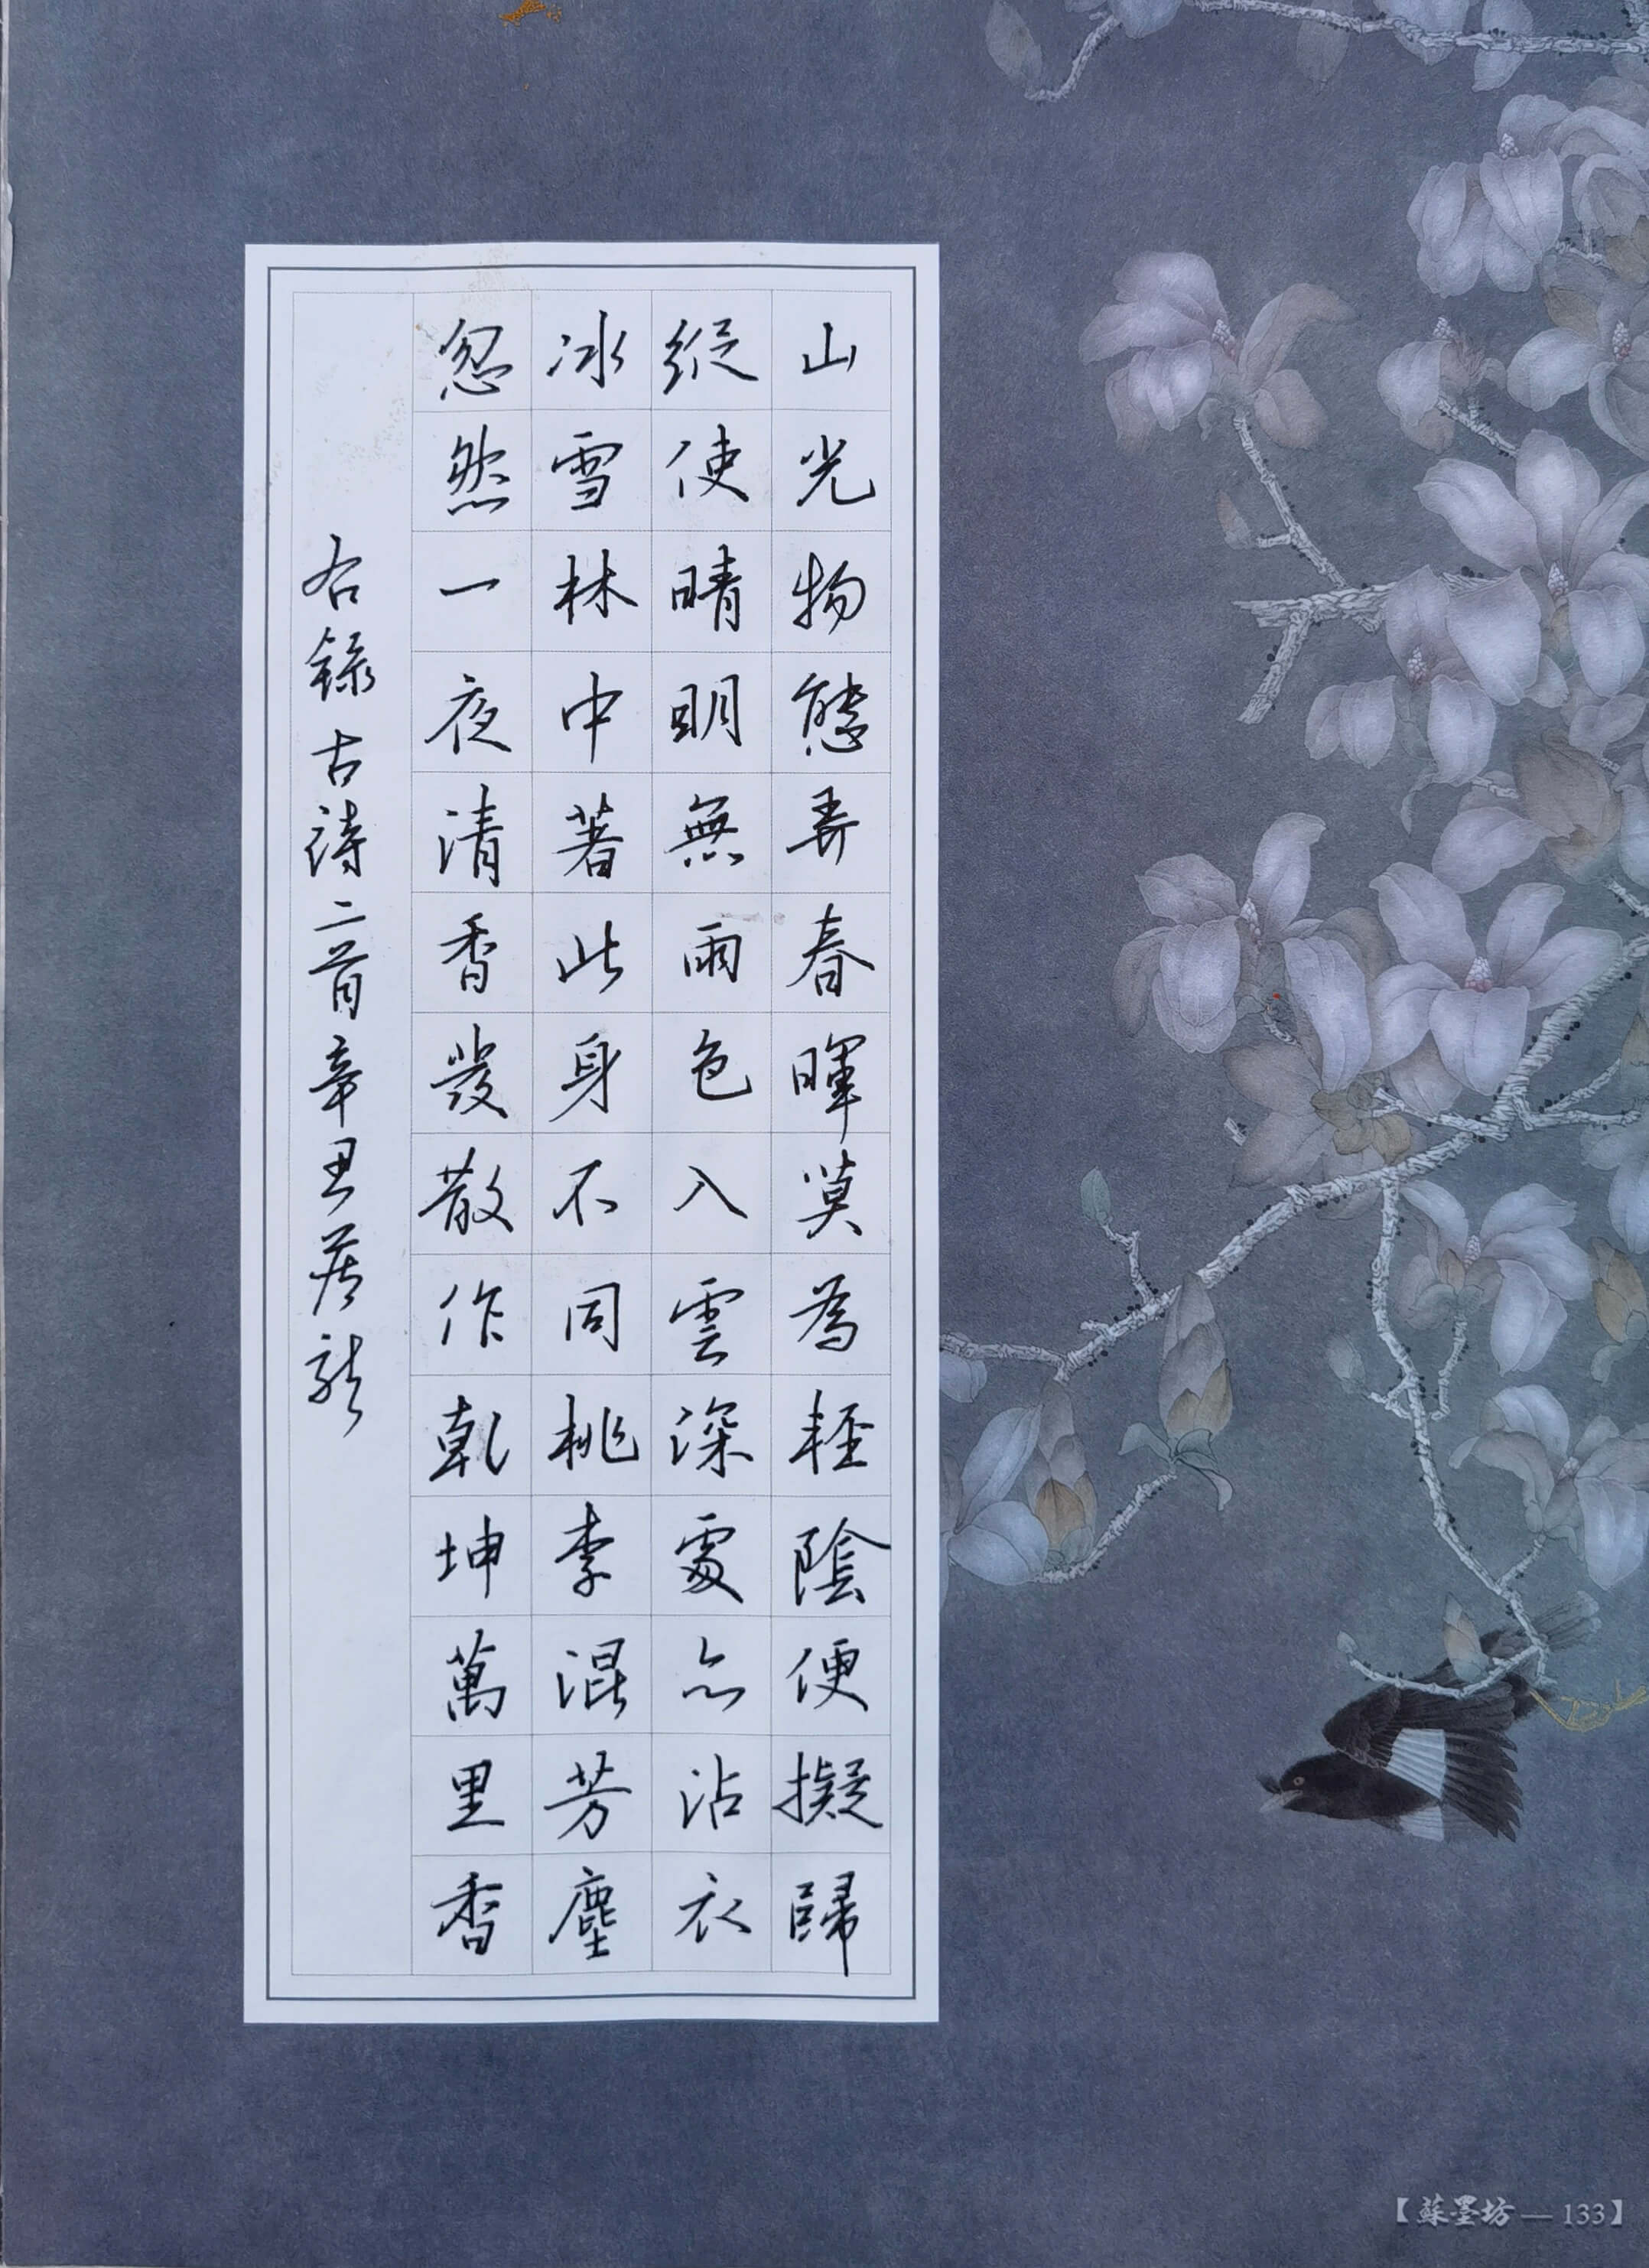 山光物態弄春暉莫為輕陰便擬歸
縱使晴明無雨色入雲深處亦沾衣
冰雪林中著此身不同桃李混芳塵
忽然一夜清香發散作乾坤萬里香
右錄古詩二首辛丑
【蘇墨坊 — 133】